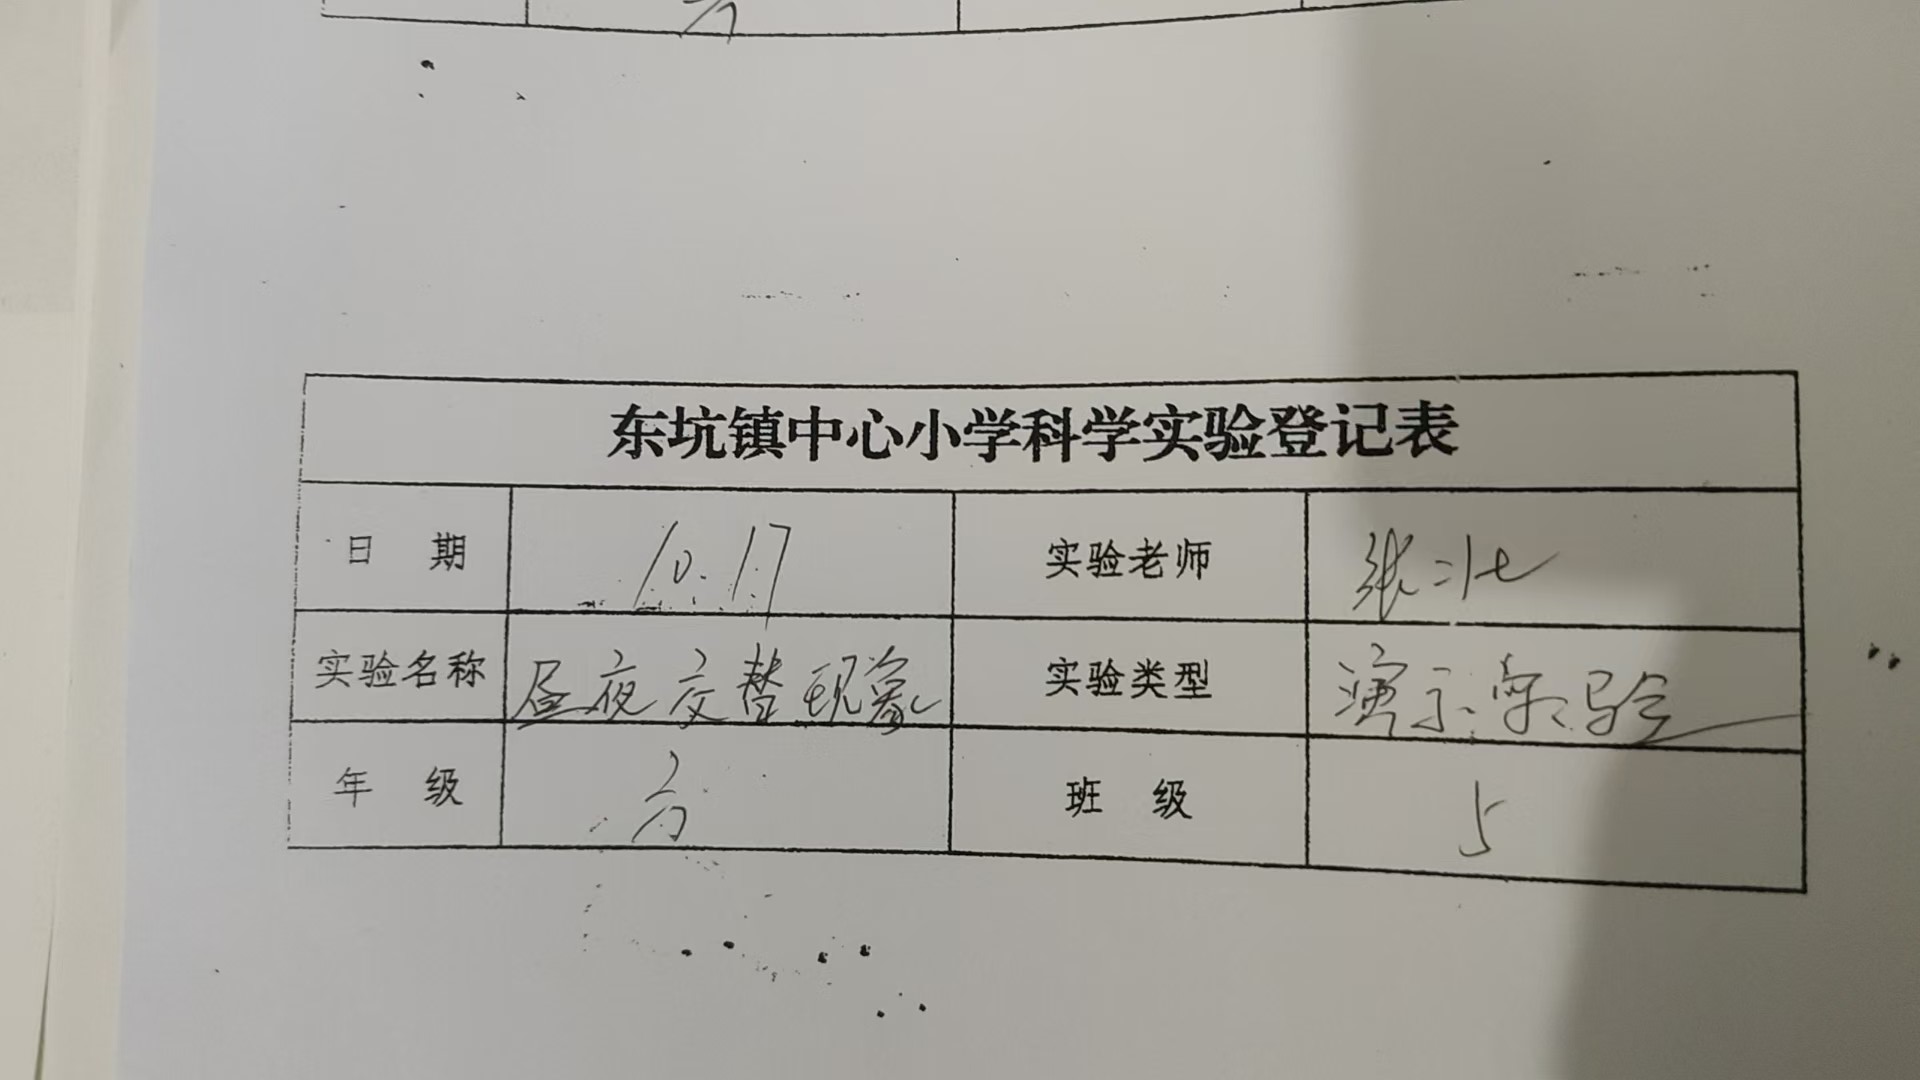 六
东坑镇中心小学科学实验登记表
日 期 10.17 实验老师 张
实验名称 昼夜交替现象 实验类型 演示实验
年 级 六 班 级 5